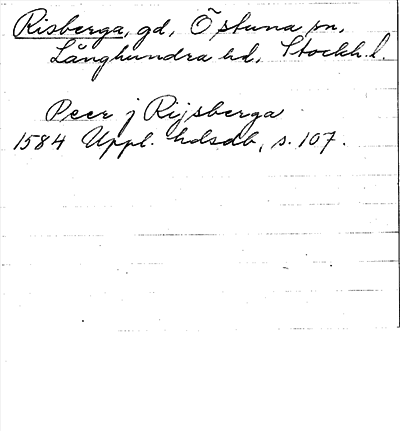 Risberga, gd, Östuna sn,
Långhundra hd, Stockh. l.
Peer j Rijsberga
1584 Uppl. hdsdb, s. 107.